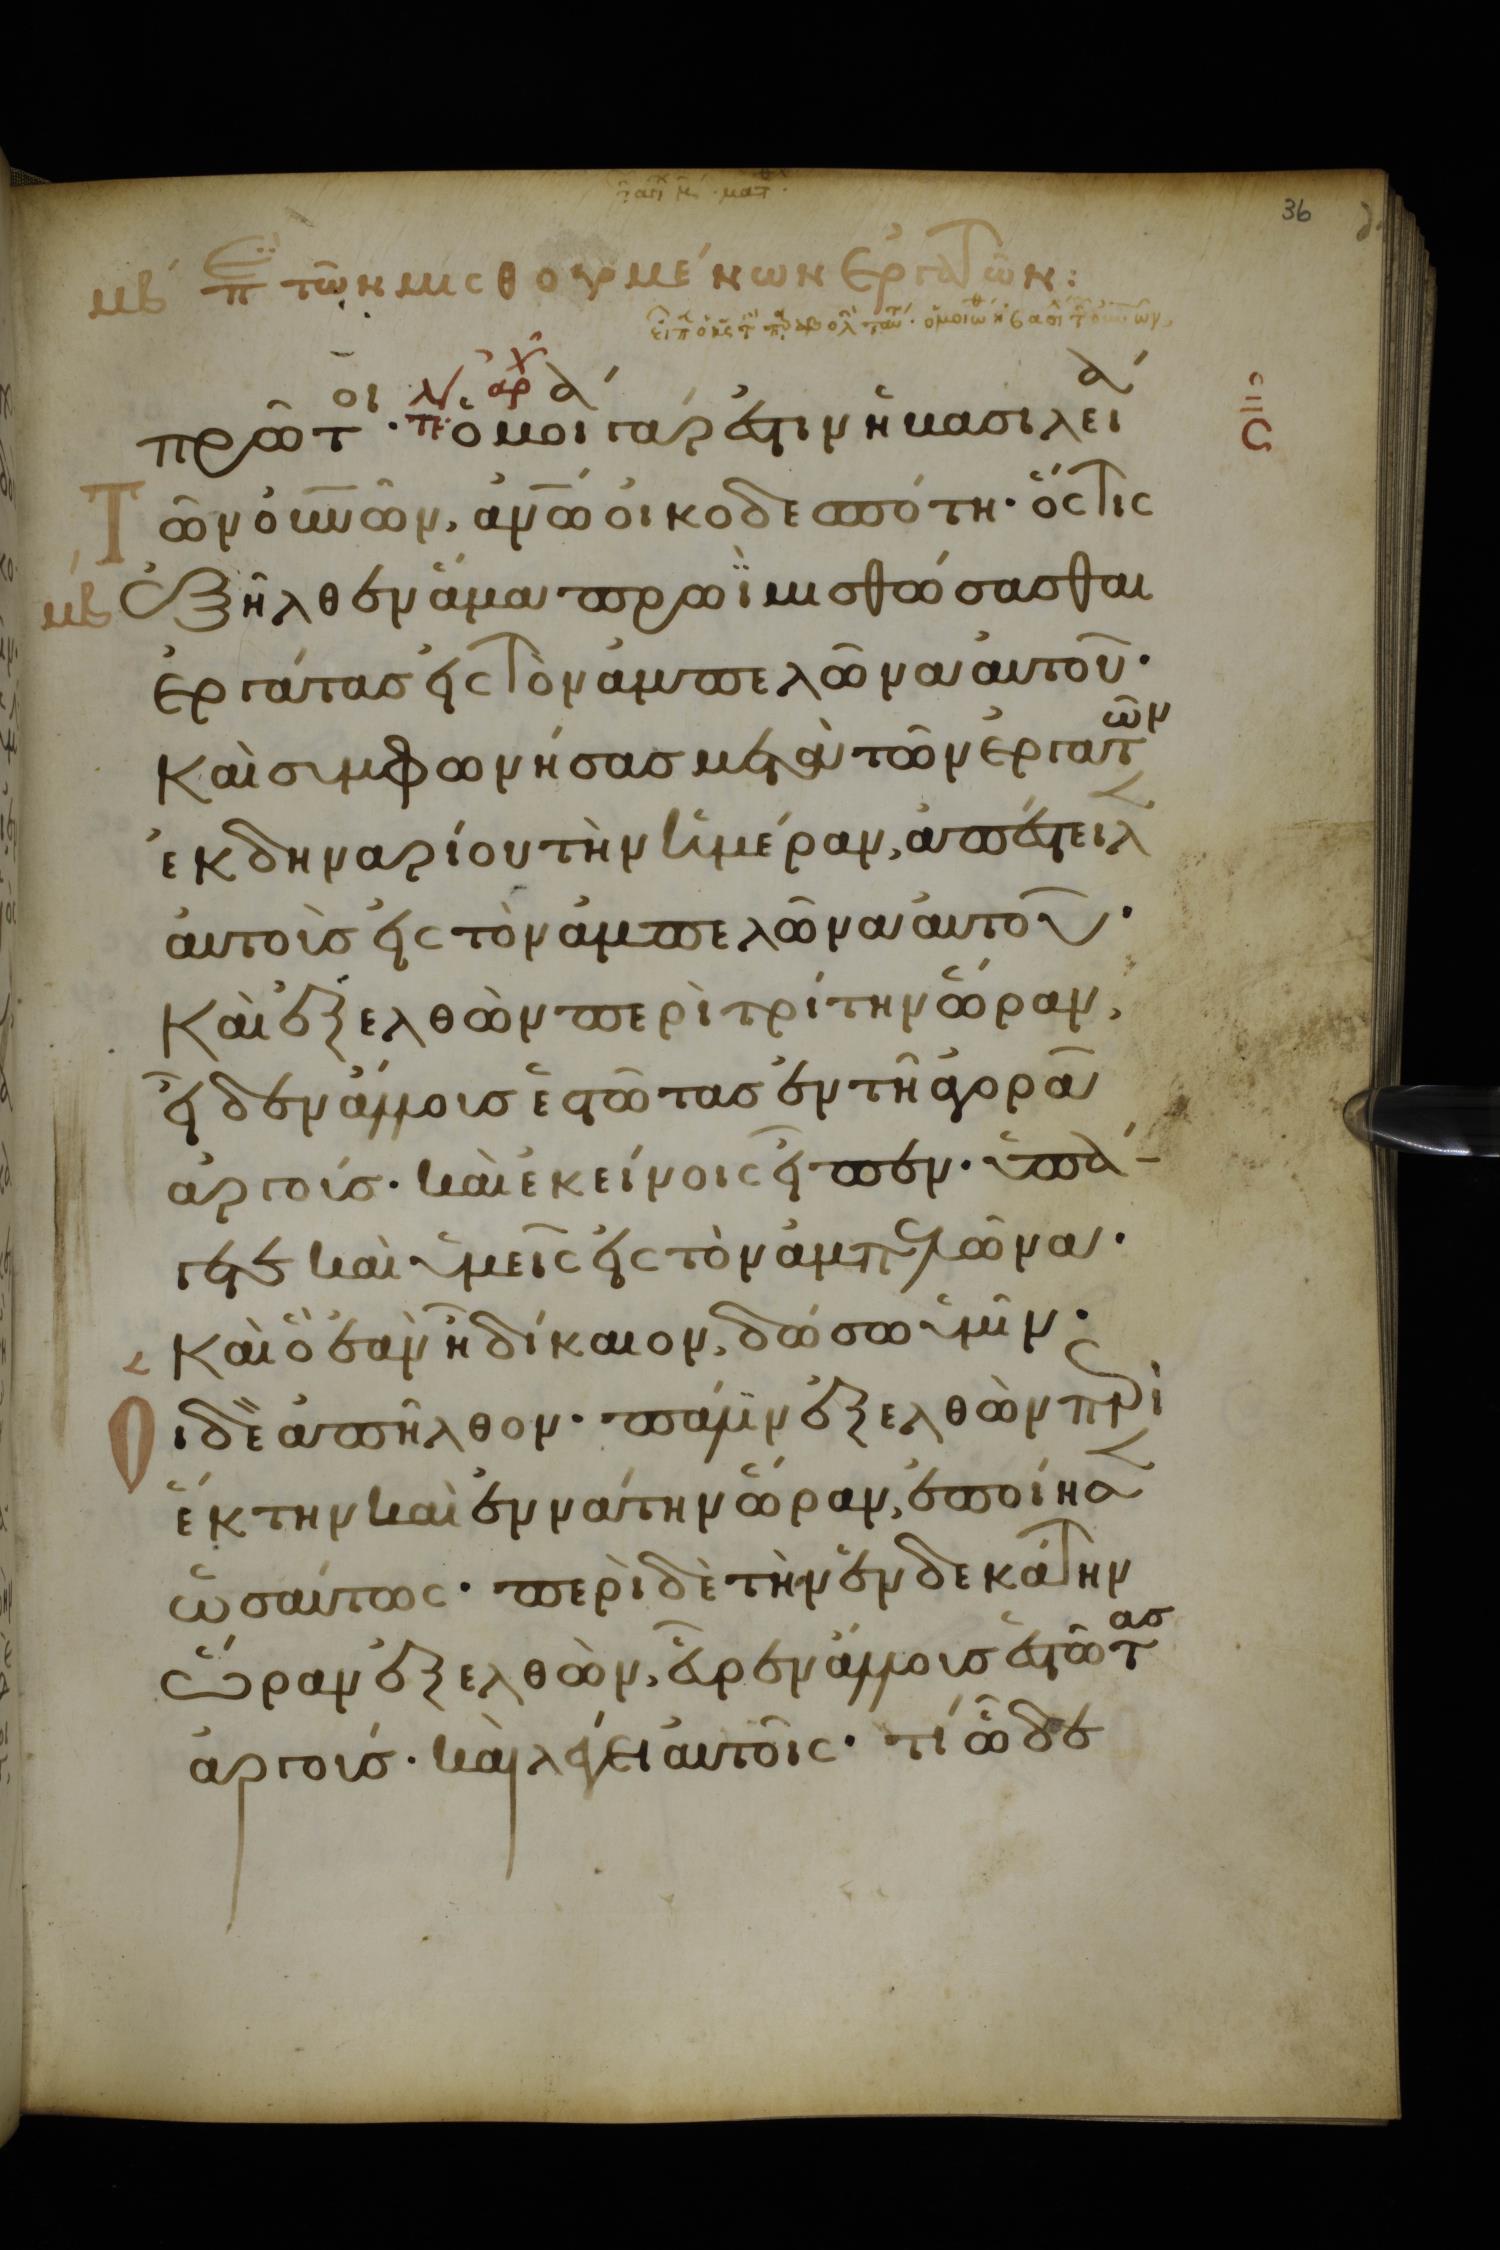 36
μβ π τῶν μισθουμένων ἐργατῶν:
πρῶτοι· ὁμοία γάρ ἐστιν ἡ βασιλεία
τῶν οὐνῶν, ἀνῶ οἰκοδεσπότη· ὅστις
μβ ἐξῆλθεν ἅμα πρωῒ μισθώσασθαι
ἐργάτας εἰς τὸν ἀμπελῶνα αὐτοῦ·
Καὶ συμφωνήσας μετὰ τῶν ἐργατῶν
ἐκ δηναρίου τὴν ἡμέραν, ἀπέστειλ
αὐτοὺς εἰς τὸν ἀμπελῶνα αὐτοῦ·
Καὶ ἐξελθὼν περὶ τρίτην ὥραν,
εἶδεν ἄλλους ἑστῶτας ἐν τῆ ἀγορᾶ
ἀργούς· καὶ ἐκείνοις εἶπεν· ὑπά-
γετε καὶ ὑμεῖς εἰς τὸν ἀμπελῶνα·
Καὶ ὃ ἐὰν ἦ δίκαιον, δώσω ὑμῖν·
Οἱ δὲ ἀπῆλθον· πάλιν ἐξελθὼν περὶ
ἕκτην καὶ ἐννάτην ὥραν, ἐποίησ
ὡσαύτως· περὶ δὲ τὴν ἑνδεκάτην
ὥραν ἐξελθὼν, εὗρεν ἄλλους ἑστῶτας
ἀργούς· καὶ λέγει αὐτοῖς· τί ὧδε